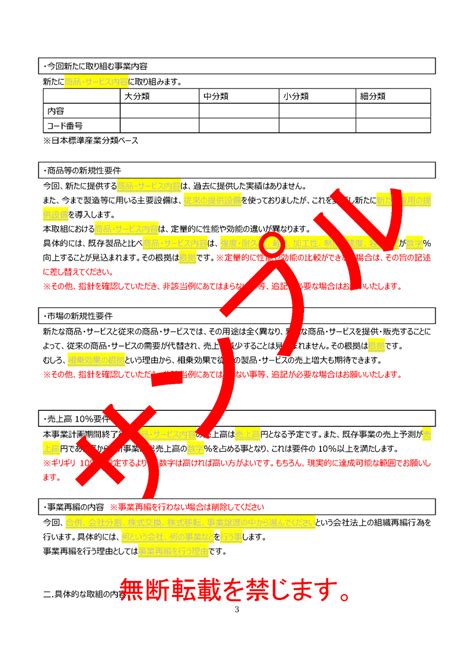 ・今回新たに取り組む事業内容
新たに商品・サービス内容に取り組みます。
大分類 中分類 小分類 細分類
内容
コード番号
※日本標準産業分類ベース
・商品等の新規性要件
今回、新たに提供する商品・サービス内容は、過去に提供した実績はありません。
また、今まで製造等に用いる主要設備は、従来の提供設備を使っておりましたが、これを 新たに
設備を導入します。
本取組における商品・サービス内容は、定量的に性能や効能の違いが異なります。
具体的には、既存製品と比べ商品・サービス内容は、強度・耐久 加工性、 数字%
向上することが見込まれます。その根拠は根拠です。※定量的に性能 効能の比較ができ 場合は、その旨の記述
に差し替えてください。
※その他、指針を確認していただき、非該当例にあてはまらない 等、追記が必要な場合はお願いいたします。
・市場の新規性要件
新たな商品・サービスと従来の商品・サービスでは、その用途は全く異なり、 な商品・サービスを提供・販売することに
よって、従来の商品・サービスの需要が代替され、売上 減少することは見 まれません。その根拠は根拠です。
むしろ、相乗効果の根拠という理由から、相乗効果で従 の製品・サービスの売上増大も期待できます。
※その他、指針を確認していただき、 該当例にあては ない事等、追記が必要な場合はお願いいたします。
・売上高 10%要件
本事業計画期間終了 ・サービス内容の売上高は売上高円となる予定です。また、既存事業の売上予測が売
上高円であ 事業 売上高の数字%を占める事となり、これは要件の 10%以上を満たします。
※ギリギリ 10% 定するより 数字は高ければ高い方がよいです。もちろん、現実的に達成可能な範囲でお願いし
ます。
・事業再編の内容 ※事業再編を行わない場合は削除してください
今回、合併、会社分割、株式交換、株式移転、事業譲渡の中から選んでくださいという会社法上の組織再編行為を
行います。具体的には、何という会社、何の事業などを行う事します。
事業再編を行う理由としては事業再編を行う理由です。
サンプル
無断転載を禁じます。
二.具体的な取組の内容
3